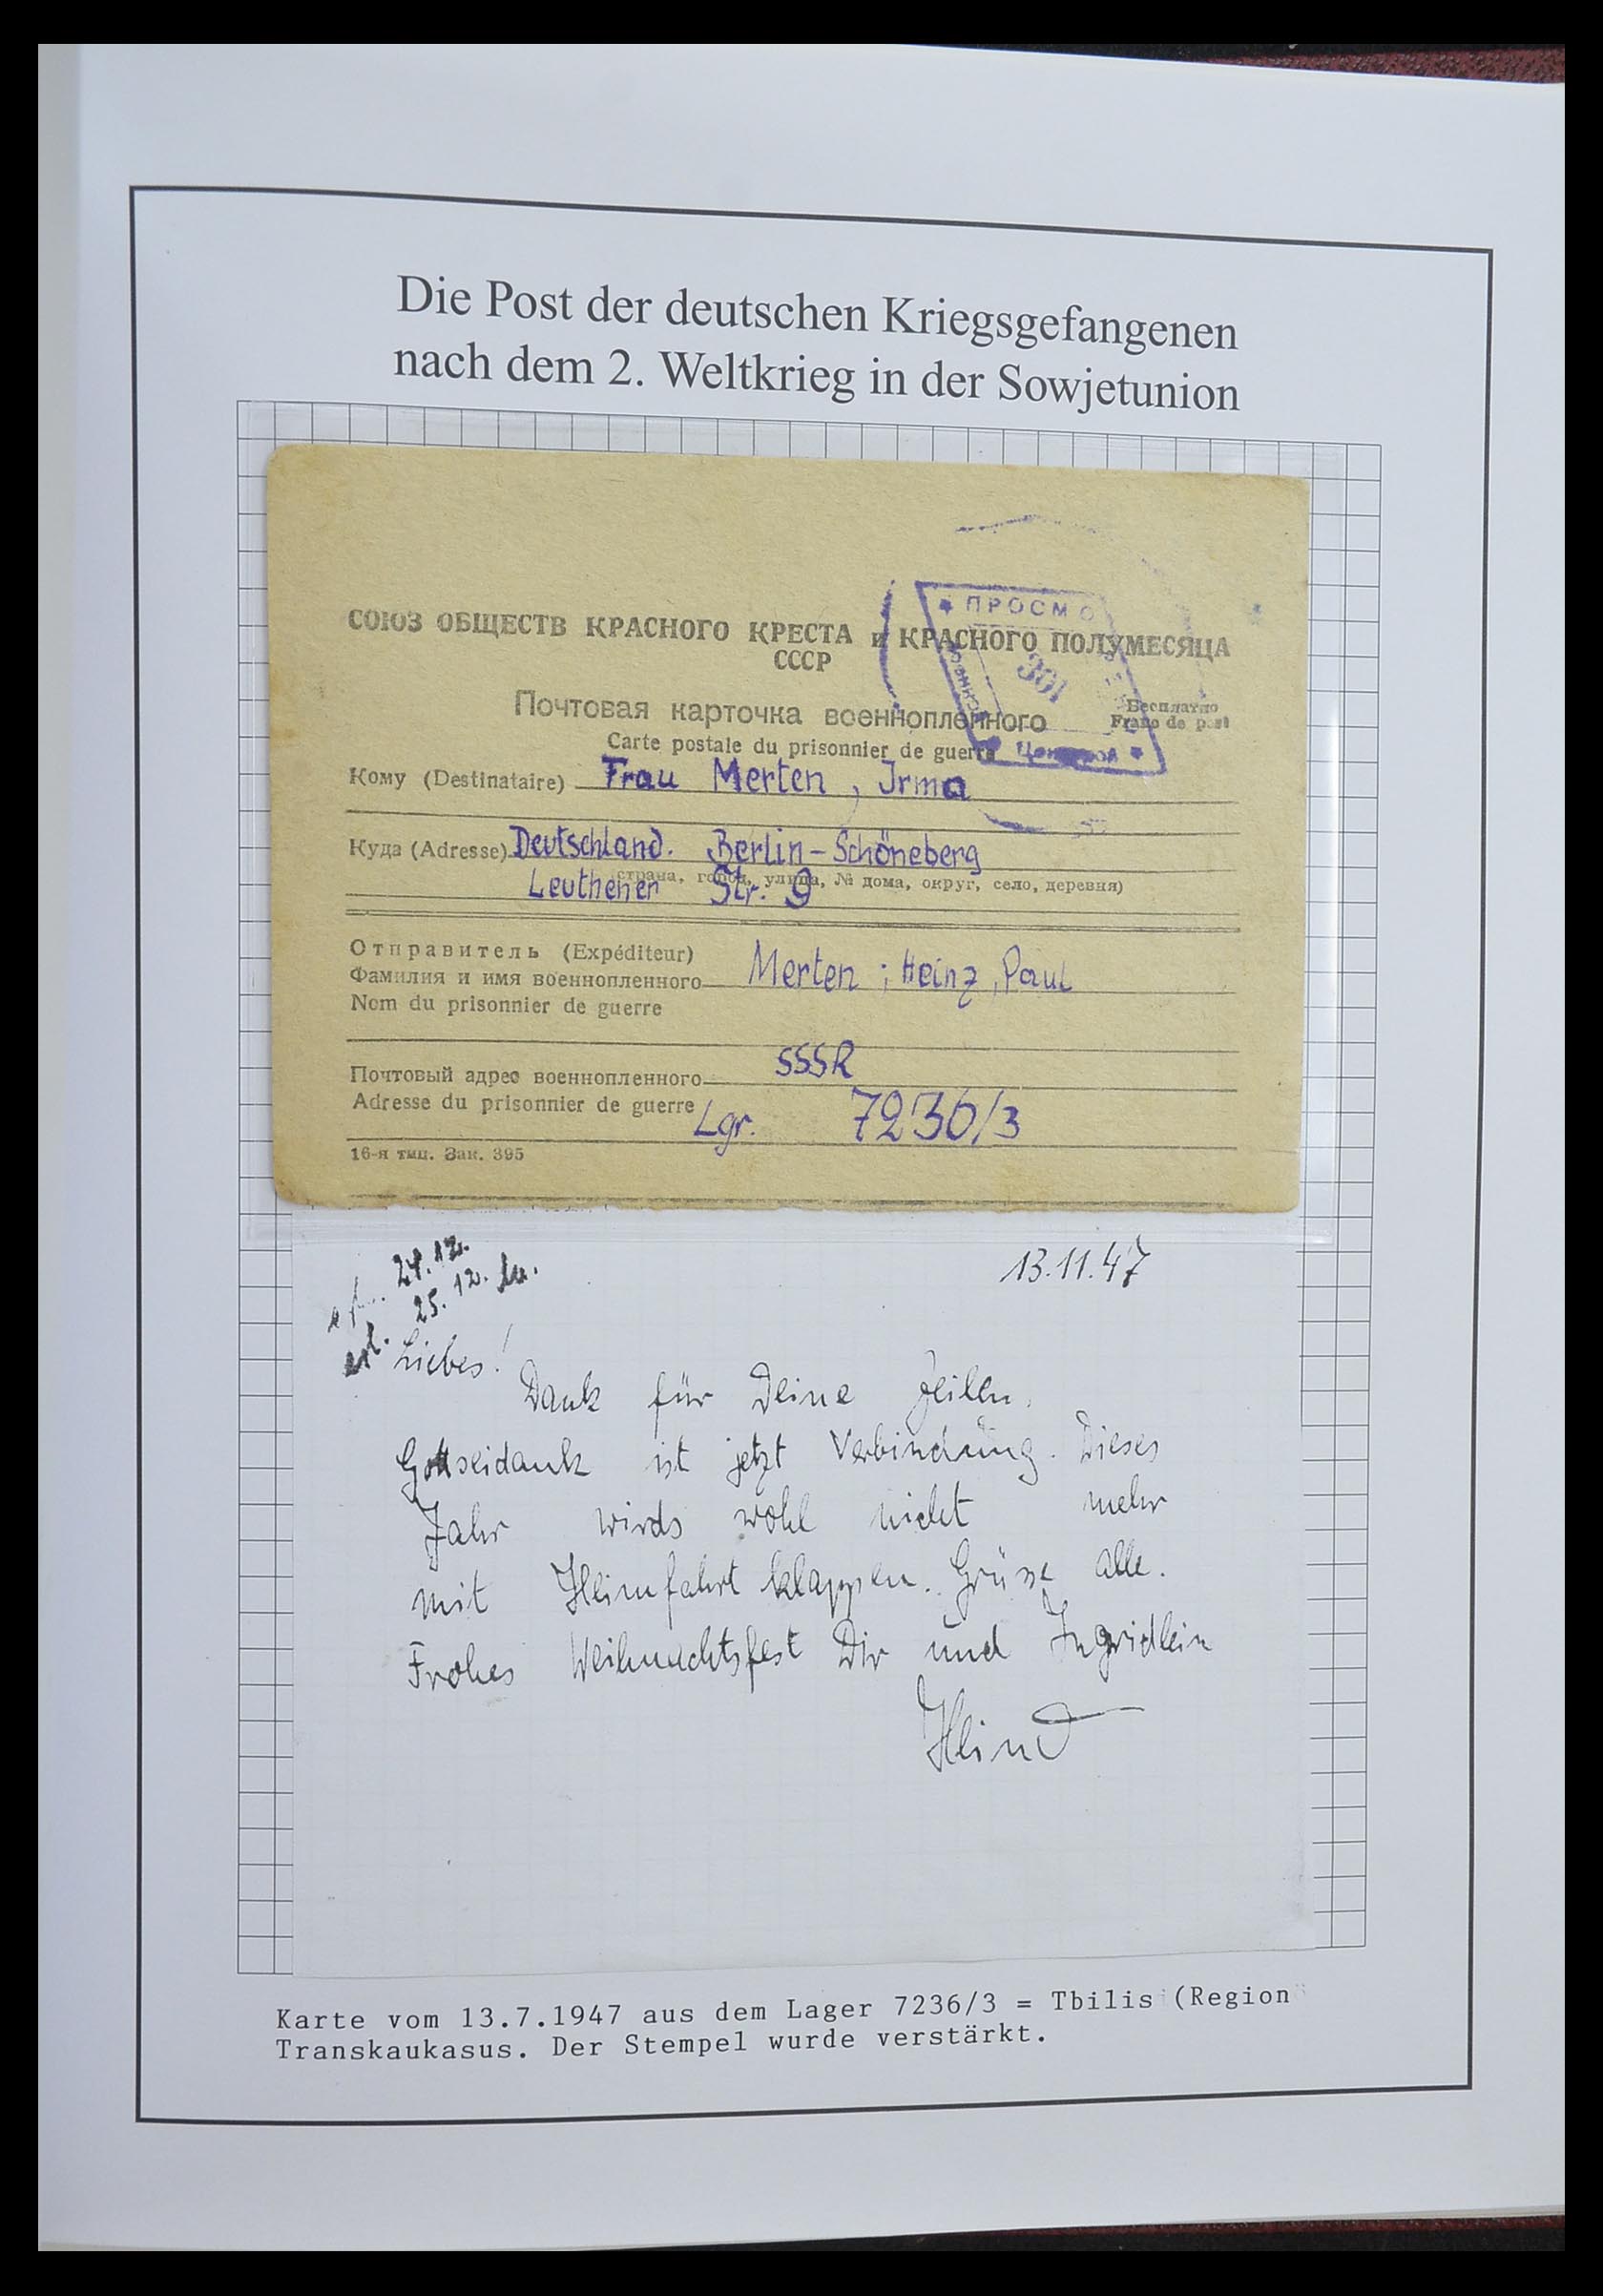 Die Post der deutschen Kriegsgefangenen
nach dem 2. Weltkrieg in der Sowjetunion
СОЮЗ ОБЩЕСТВ КРАСНОГО КРЕСТА и КРАСНОГО ПОЛУМЕСЯЦА
СССР
ПРОСМО
301
Почтовая карточка военнопленного
Бесплатно
Franc de port
Carte postale du prisonnier de guerre
Кому (Destinataire) Frau Merten, Irma
Куда (Adresse) Deutschland. Berlin-Schöneberg
(страна, город, улица, № дома, округ, село, деревня)
Leuthener Str. 9
Отправитель (Expéditeur)
Фамилия и имя военнопленного Merten; Heinz, Paul
Nom du prisonnier de guerre
SSSR
Почтовый адрес военнопленного
Adresse du prisonnier de guerre Lgr. 7236/3
16-я тип. Зак. 395
24.12.
erl. 25.12.
13.11.47
Liebes!
Dank für Deine Zeilen.
Gottseidank ist jetzt Verbindung. Dieses
Jahr wirds wohl nicht mehr
mit Heimfahrt klappen. Grüsse alle.
Frohes Weihnachtsfest Dir und Ingridlein
Karte vom 13.7.1947 aus dem Lager 7236/3 = Tbilisi (Region
Transkaukasus. Der Stempel wurde verstärkt.